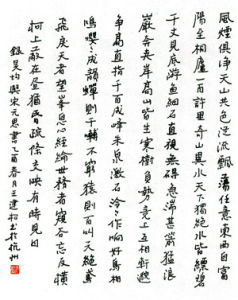 風煙俱淨天山共色從流飄蕩任意東西自富
陽至桐廬一百許里奇山異水天下獨絕水皆縹碧
千丈見底游魚細石直視無礙急湍甚箭猛浪
若奔夾岸高山皆生寒樹負勢競上互相軒邈
爭高直指千百成峰泉水激石泠泠作響好鳥相
鳴嚶嚶成韻蟬則千囀不窮猿則百叫無絕鳶
飛戾天者望峯息心經綸世務者窺谷忘反橫
柯上蔽在晝猶昏疏條交映有時見日
錄吳均與宋元思書乙酉春月王建於杭州